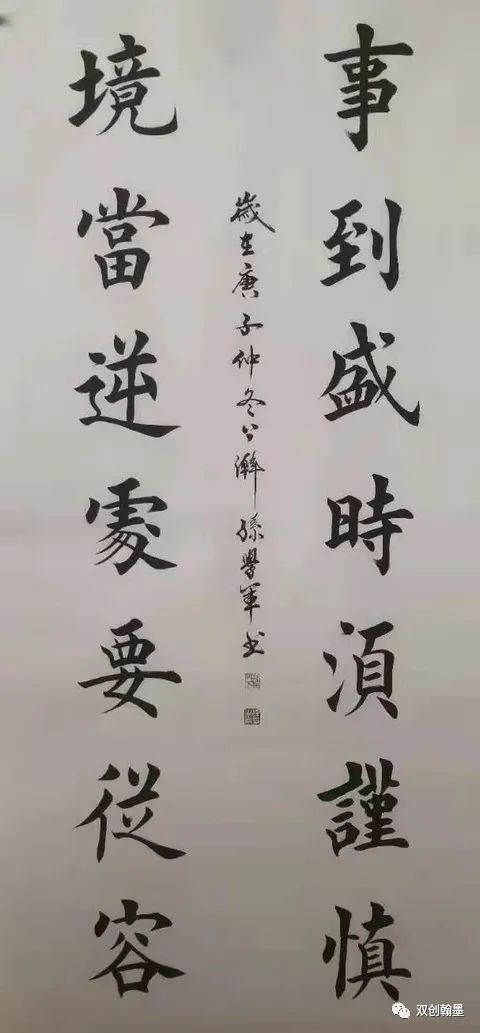 事到盛時湏謹慎
歲在庚子仲冬公瀚孫學軍书
境當逆處要従容
双创翰墨